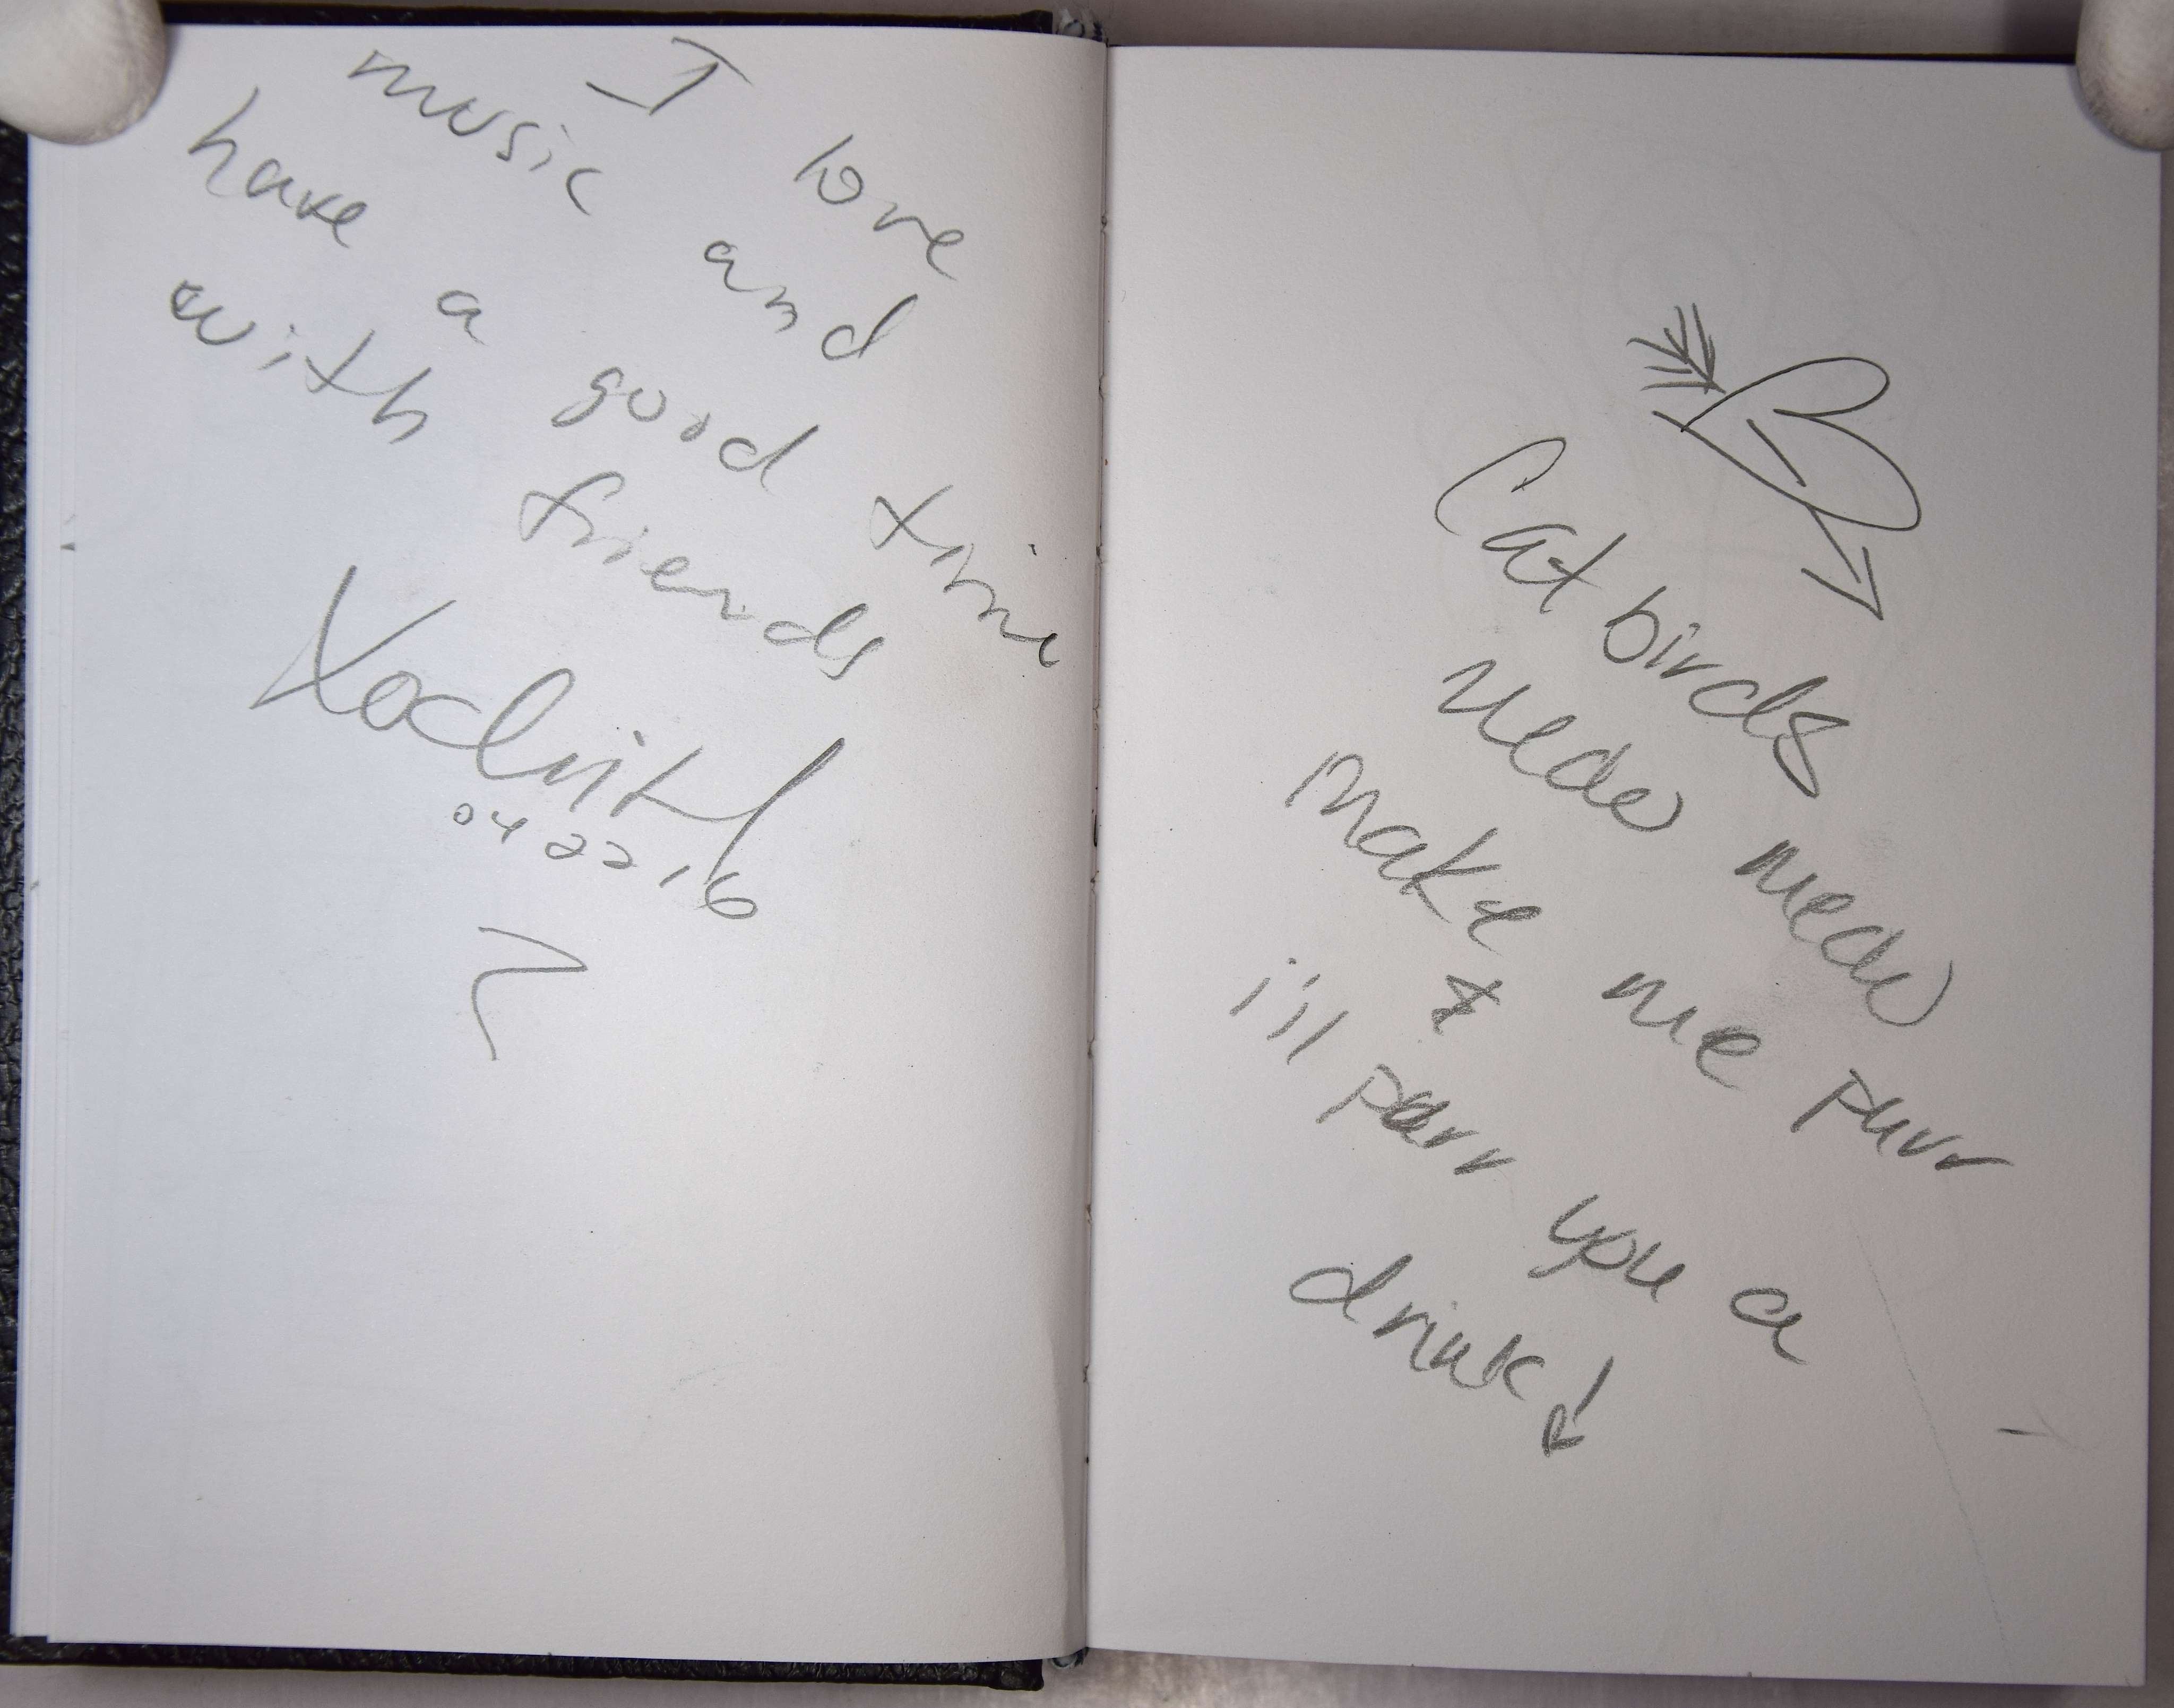 I love
music and
have a good time
with friends
Xochitl
042216
Cat birds
meow meow
make me purr
&
i'll purr you a
drink!